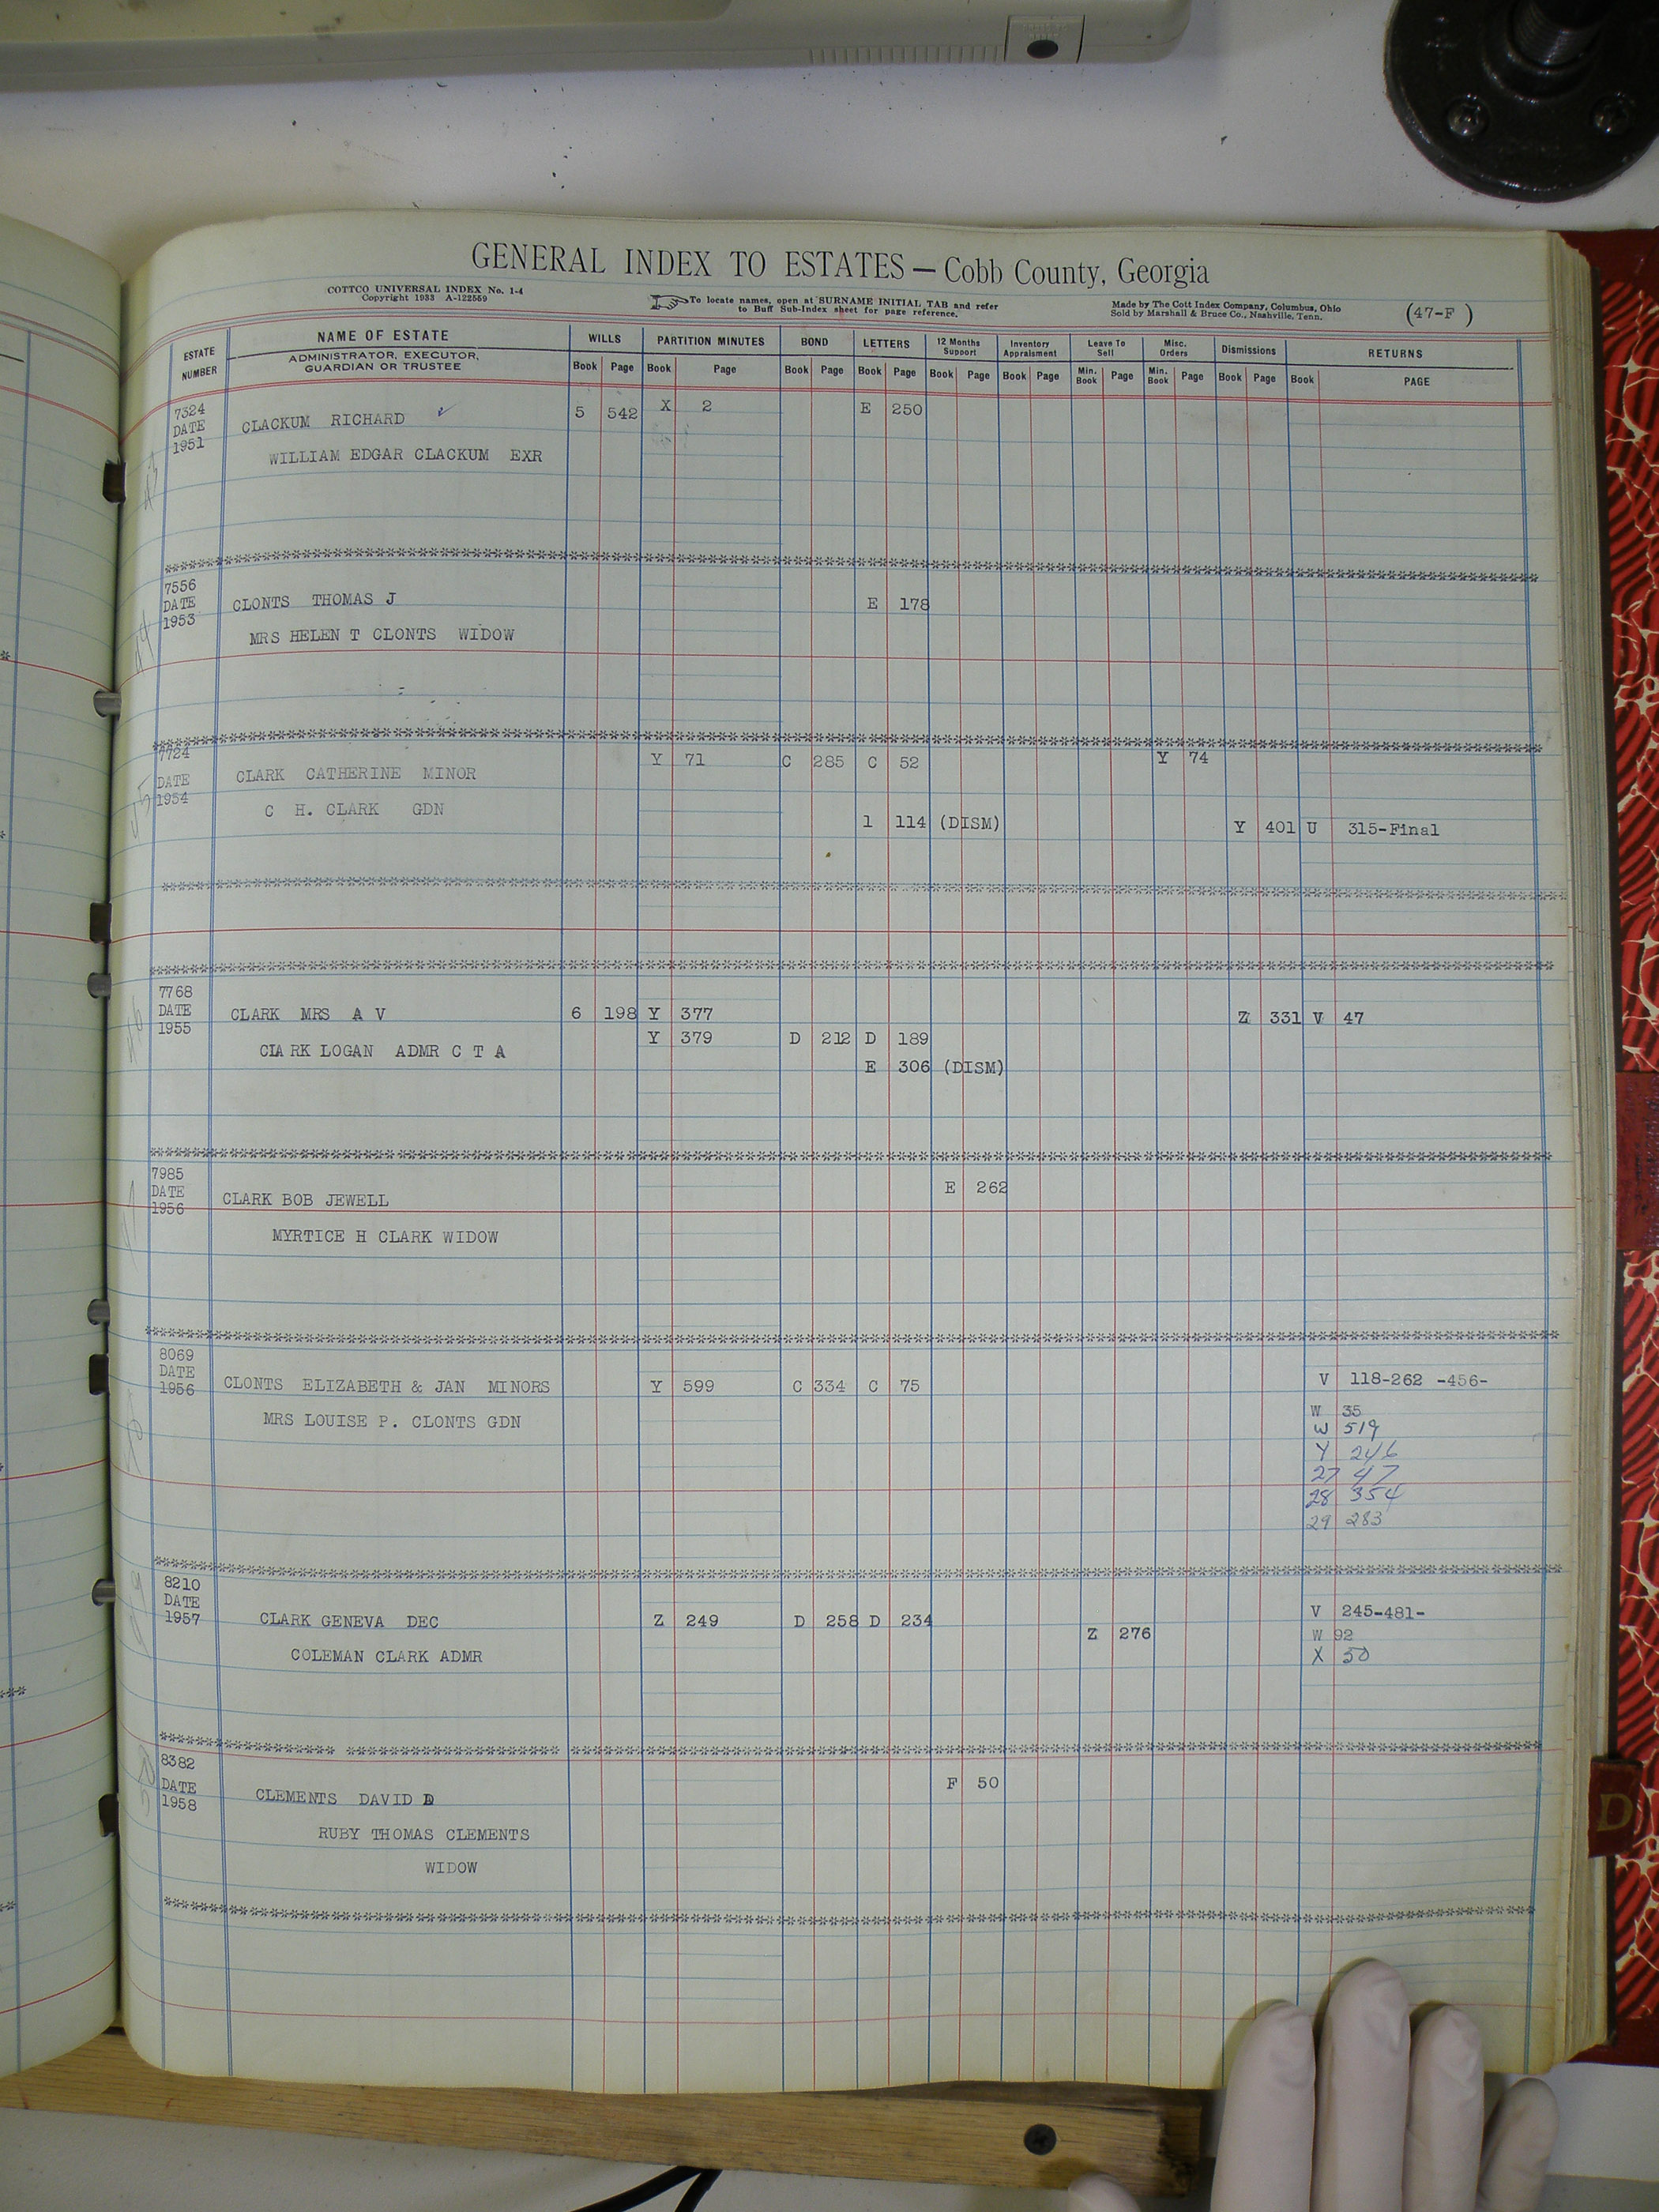 GENERAL INDEX TO ESTATES — Cobb County, Georgia
COTTCO UNIVERSAL INDEX No. 1-4
Copyright 1933 A-122559
To locate names, open at SURNAME INITIAL TAB and refer
to Buff Sub-Index sheet for page reference.
Made by The Cott Index Company, Columbus, Ohio
Sold by Marshall & Bruce Co., Nashville, Tenn.
(47-F )
ESTATE NUMBER
NAME OF ESTATE
ADMINISTRATOR, EXECUTOR,
GUARDIAN OR TRUSTEE
WILLS PARTITION MINUTES BOND LETTERS 12 Months Support Inventory Appraisment Leave To Sell Misc. Orders Dismissions RETURNS
Book Page Book Page Book Page Book Page Book Page Book Page Min. Book Page Min. Book Page Book Page Book PAGE
7324
DATE
1951
CLACKUM RICHARD ✓ 5 542 X 2 E 250
WILLIAM EDGAR CLACKUM EXR
7556
DATE
1953
CLONTS THOMAS J E 178
MRS HELEN T CLONTS WIDOW
7724
DATE
1954
CLARK CATHERINE MINOR Y 71 C 285 C 52 Y 74
C H. CLARK GDN
1 114 (DISM) Y 401 U 315-Final
7768
DATE
1955
CLARK MRS A V 6 198 Y 377 Z 331 V 47
Y 379 D 212 D 189
CLARK LOGAN ADMR C T A
E 306 (DISM)
7985
DATE
1956
CLARK BOB JEWELL E 262
MYRTICE H CLARK WIDOW
8069
DATE
1956
CLONTS ELIZABETH & JAN MINORS Y 599 C 334 C 75 V 118-262 -456-
MRS LOUISE P. CLONTS GDN
W 35
W 519
Y 246
27 47
28 354
29 283
8210
DATE
1957
CLARK GENEVA DEC Z 249 D 258 D 234 V 245-481-
Z 276 W 92
COLEMAN CLARK ADMR X 50
8382
DATE
1958
CLEMENTS DAVID D F 50
RUBY THOMAS CLEMENTS
WIDOW
D